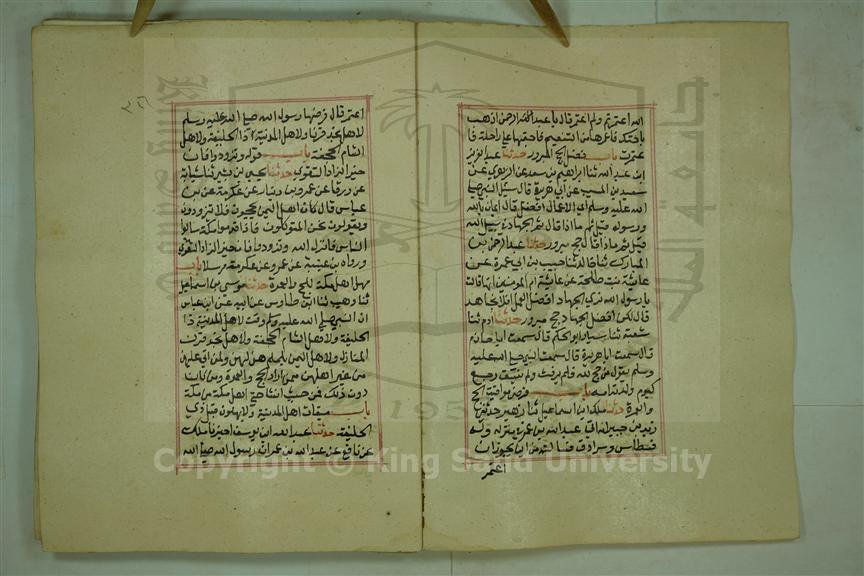 الله اعتمرتم ولم اعتمر قال يا عبد الرحمن اذهب
باختك فاعمرها من التنعيم فاحقبها على راحلة فا
عتمرت باب فضل الحج المبرور حدثنا عبد العزيز
ابن عبد الله ثنا ابراهيم بن سعد عن الزهري عن
سعيد بن المسيب عن ابي هريرة قال سئل النبي صلى
الله عليه وسلم اي الاعمال افضل قال ايمان بالله
ورسوله قيل ثم ماذا قال ثم الجهاد في سبيل الله
قيل ثم ماذا قال حج مبرور حدثنا عبد الرحمن بن
المبارك ثنا خالد ثنا حبيب بن ابي عمرة عن
عايشة بنت طلحة عن عايشة ام المومنين انها قالت
يا رسول الله نرى الجهاد افضل العمل افلا نجاهد
قال لكن افضل الجهاد حج مبرور حدثنا آدم ثنا
شعبة ثنا سيار ابو الحكم قال سمعت ابا حازم
قال سمعت ابا هريرة قال سمعت النبي صلى الله عليه
وسلم يقول من حج لله فلم يرفث ولم يفسق رجع
كيوم ولدته امه باب فرض مواقيت الحج
والعمرة حدثنا مالك ابن اسماعيل ثنا زهير حدثني
زيد بن جبير انه اتى عبد الله بن عمر في منزله وله
فسطاس وسرادق فسالته من اين يجوز ان
اعتمر
اعتمر قال فرضها رسول الله صلى الله عليه وسلم
لاهل نجد قرنا ولاهل المدينة ذا الحليفة ولاهل
الشام الجحفة باب قوله وتزودوا فان
خير الزاد التقوى حدثنا يحيى بن بشير ثنا شبابة
عن ورقا عن عمرو بن دينار عن عكرمة عن بن
عباس قال كان اهل اليمن يحجون فلا يتزودون
ويقولون نحن المتوكلون فاذا قدموا مكة سالوا
الناس فانزل الله وتزودوا فان خير الزاد التقوى
ورواه بن عيينة عن عمرو عن عكرمة مرسلا باب
مهل اهل مكة للحج والعمرة حدثنا موسى بن اسماعيل
ثنا وهيب ثنا ابن طاوس عن ابيه عن ابن عباس
ان النبي صلى الله عليه وسلم وقت لاهل المدينة ذا
الحليفة ولاهل الشام الجحفة ولاهل نجد قرن
المنازل ولاهل اليمن يلملم هن لهن ولمن اتى عليهن
من غير اهلهن ممن اراد الحج والعمرة ومن كان
دون ذلك فمن حيث انشا حتى اهل مكة من مكة
باب ميقات اهل المدينة ولا يهلون قبل ذي
الحليفة حدثنا عبد الله ابن يوسف اخبرنا ملك
عن نافع عن عبد الله بن عمر ان رسول الله صلى الله
Copyright © King Saud University